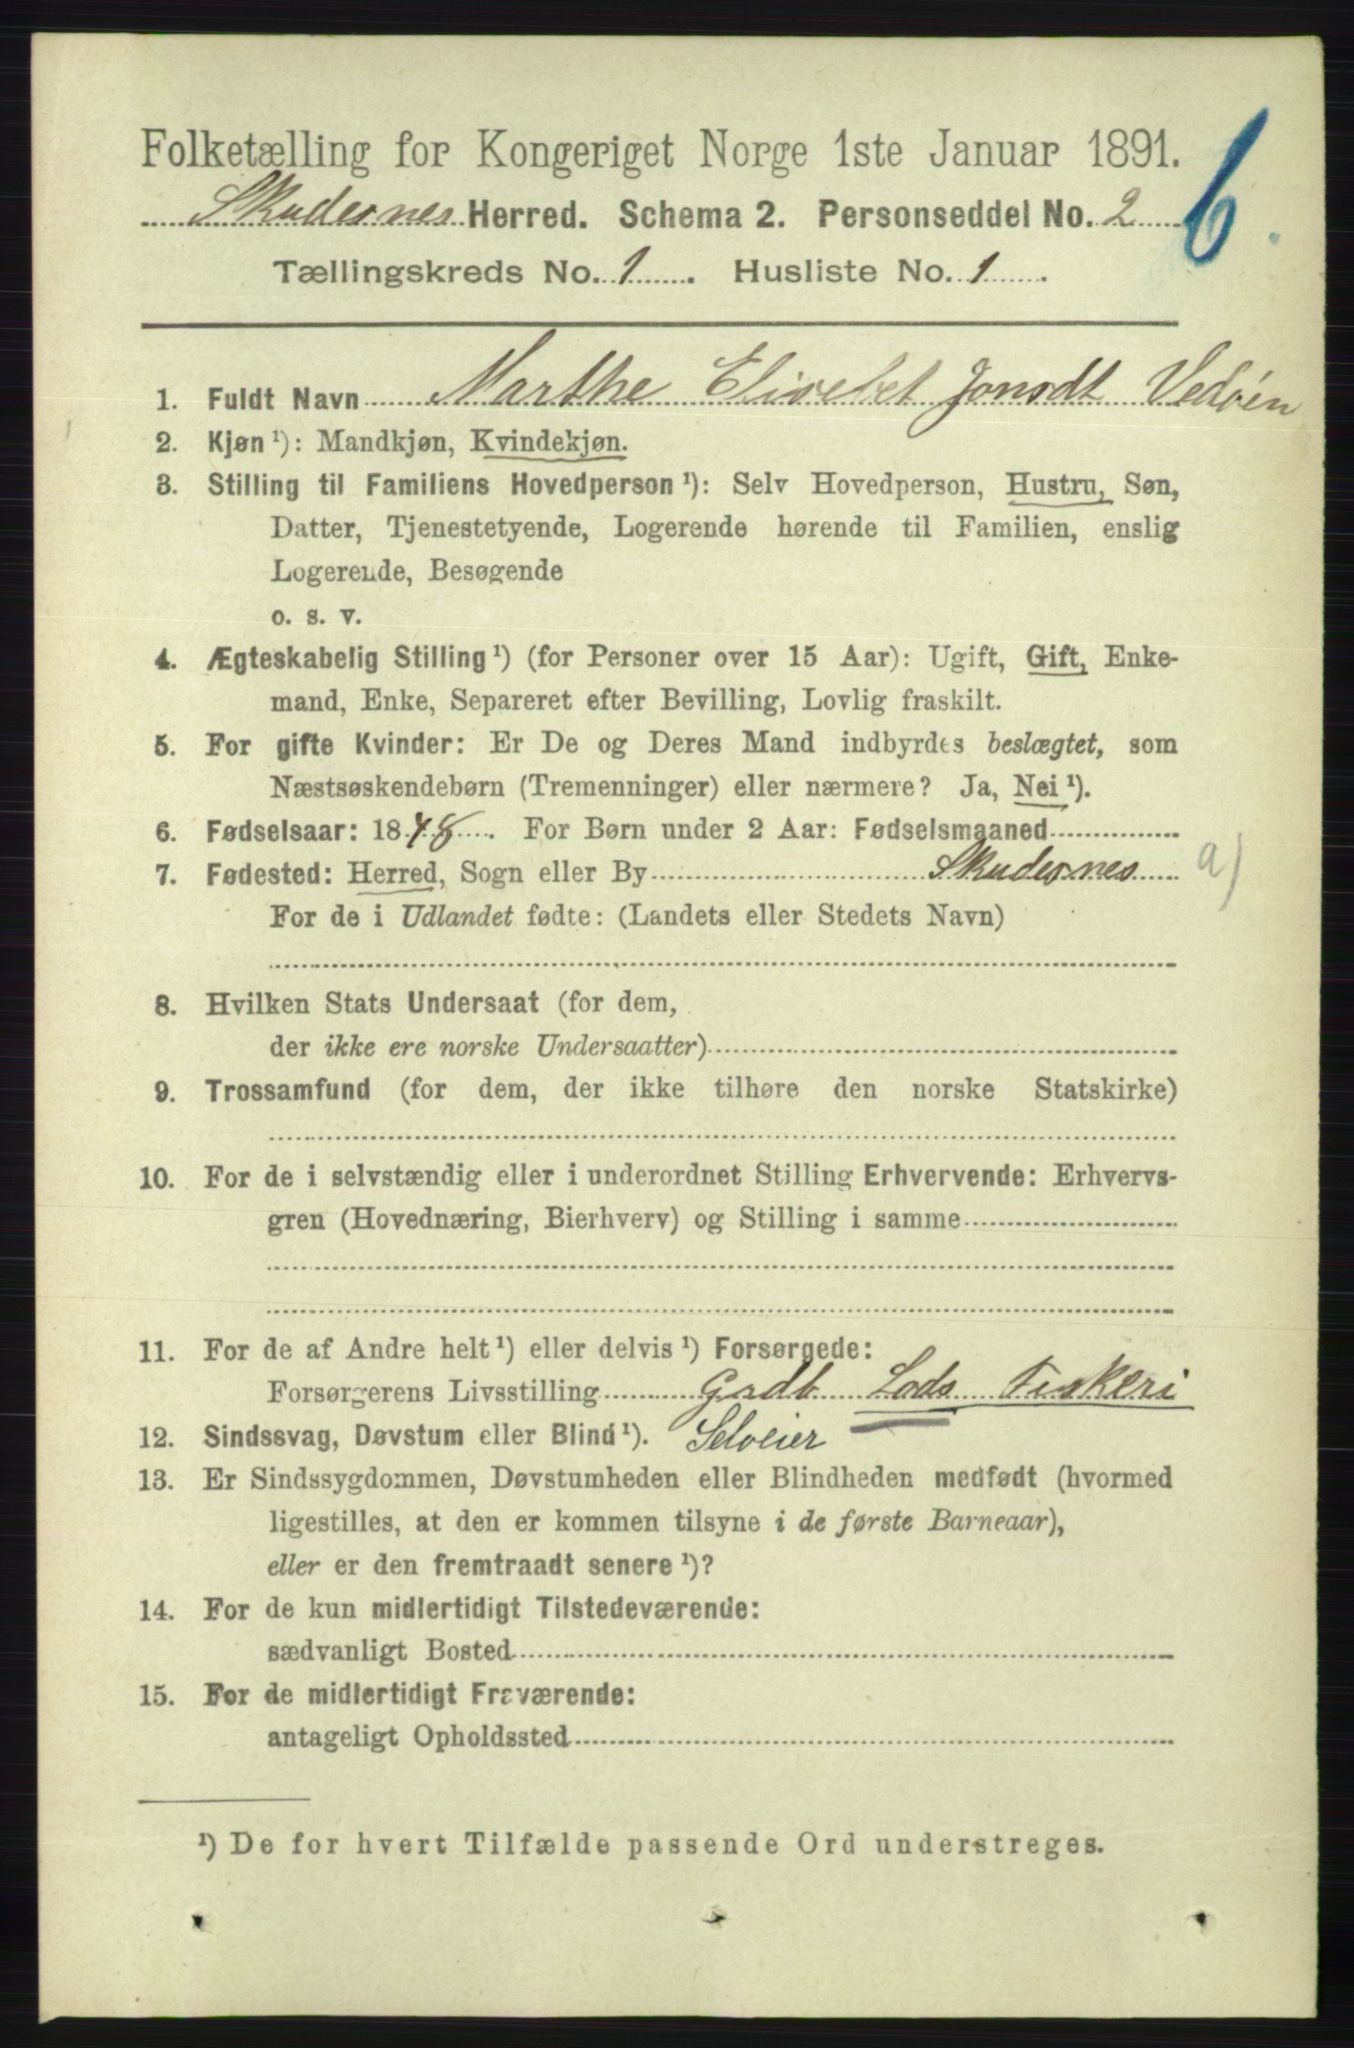 Folketælling for Kongeriget Norge 1ste Januar 1891.
6
Skudesnes Herred. Schema 2. Personseddel No. 2
Tællingskreds No. 1. Husliste No. 1.
1. Fuldt Navn Marthe Elisebet Jonsdt Vedøen
2. Kjøn ¹): Mandkjøn, Kvindekjøn.
3. Stilling til Familiens Hovedperson ¹): Selv Hovedperson, Hustru, Søn,
Datter, Tjenestetyende, Logerende hørende til Familien, enslig
Logerende, Besøgende
o. s. v.
4. Ægteskabelig Stilling ¹) (for Personer over 15 Aar): Ugift, Gift, Enke-
mand, Enke, Separeret efter Bevilling, Lovlig fraskilt.
5. For gifte Kvinder: Er De og Deres Mand indbyrdes beslægtet, som
Næstsøskendebørn (Tremenninger) eller nærmere? Ja, Nei ¹).
6. Fødselsaar: 1848. For Børn under 2 Aar: Fødselsmaaned
7. Fødested: Herred, Sogn eller By Skudesnes a)
For de i Udlandet fødte: (Landets eller Stedets Navn)
8. Hvilken Stats Undersaat (for dem,
der ikke ere norske Undersaatter)
9. Trossamfund (for dem, der ikke tilhøre den norske Statskirke)
10. For de i selvstændig eller i underordnet Stilling Erhvervende: Erhvervs-
gren (Hovednæring, Bierhverv) og Stilling i samme
11. For de af Andre helt ¹) eller delvis ¹) Forsørgede:
Forsørgerens Livsstilling Grdb Lods Fiskeri
12. Sindssvag, Døvstum eller Blind ¹). Selveier
13. Er Sindssygdommen, Døvstumheden eller Blindheden medfødt (hvormed
ligestilles, at den er kommen tilsyne i de første Barneaar),
eller er den fremtraadt senere ¹)?
14. For de kun midlertidigt Tilstedeværende:
sædvanligt Bosted
15. For de midlertidigt Fraværende:
antageligt Opholdssted
¹) De for hvert Tilfælde passende Ord understreges.